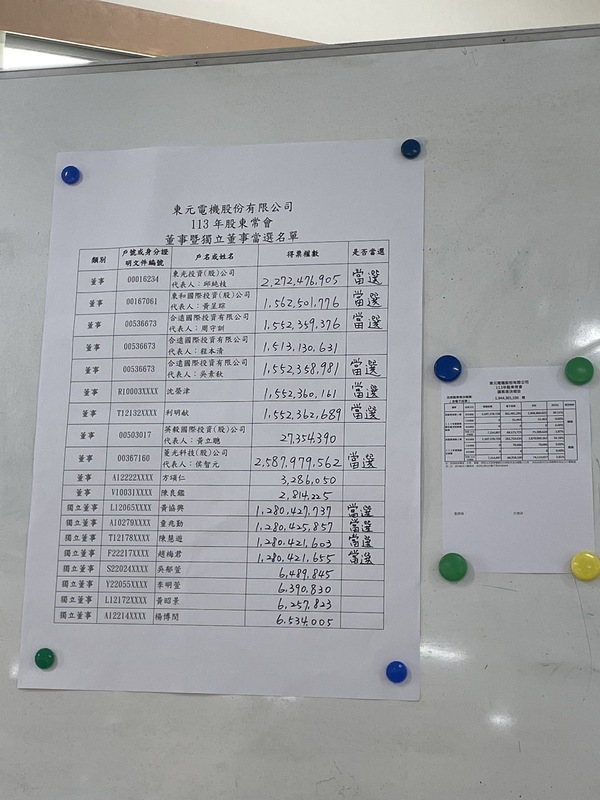 東元電機股份有限公司
113年股東常會
董事暨獨立董事當選名單
類別 戶號或身分證明文件編號 戶名或姓名 得票權數 是否當選
董事 00016234 東光投資(股)公司 代表人：邱純枝 2,272,476,905 當選
董事 00167061 東和國際投資(股)公司 代表人：黃呈琮 1,562,501,776 當選
董事 00536673 合遠國際投資(股)公司 代表人：周守訓 1,552,359,376 當選
董事 00536673 合遠國際投資(股)公司 代表人：程本清 1,513,130,631
董事 00536673 合遠國際投資(股)公司 代表人：吳素秋 1,552,358,981 當選
董事 R10003XXXX 沈榮津 1,552,360,161 當選
董事 T12132XXXX 利明献 1,552,362,689 當選
董事 00503017 英毅國際投資(股)公司 代表人：黃立聰 27,354,390
董事 00367160 菱光科技(股)公司 代表人：侯智元 2,587,979,562 當選
董事 A12222XXXX 方頌仁 3,286,050
董事 V10031XXXX 陳良鑑 2,814,225
獨立董事 L12065XXXX 黃協興 1,280,427,737 當選
獨立董事 A10279XXXX 童兆勤 1,280,425,857 當選
獨立董事 T12178XXXX 陳慧遊 1,280,421,603 當選
獨立董事 F22217XXXX 趙梅君 1,280,421,655 當選
獨立董事 S22024XXXX 吳郁萱 6,489,845
獨立董事 Y22055XXXX 李明萱 6,390,830
獨立董事 L12172XXXX 黃昭景 6,257,823
獨立董事 A12214XXXX 楊博閔 6,534,005
東元電機股份有限公司
113年股東常會